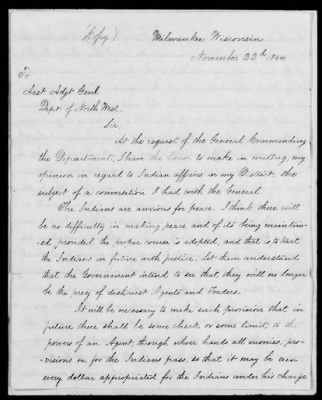 (Copy)
Milwaukee Wisconsin
November 22d 1864
To
Asst Adjt Genl.
Dept of North West.
Sir,
At the request of the General Commanding
the Department, I have the honor to make in writing, my
opinion in regard to Indian affairs in my District, the
subject of a conversation I had with the General.
The Indians are anxious for peace. I think there will
be no difficulty in making peace and of its being maintain-
ed, provided the proper course is adopted, and that is to treat
the Indians in future with justice. Let them understand
that the Government intend to see that they will no longer
be the prey of dishonest Agents and Traders.
It will be necessary to make such provision that in
future there shall be some check or some limit, to the
powers of an Agent, through whose hands all monies, pro-
visions &c for the Indians pass, so that it may be seen
every dollar appropriated for the Indians under his charge